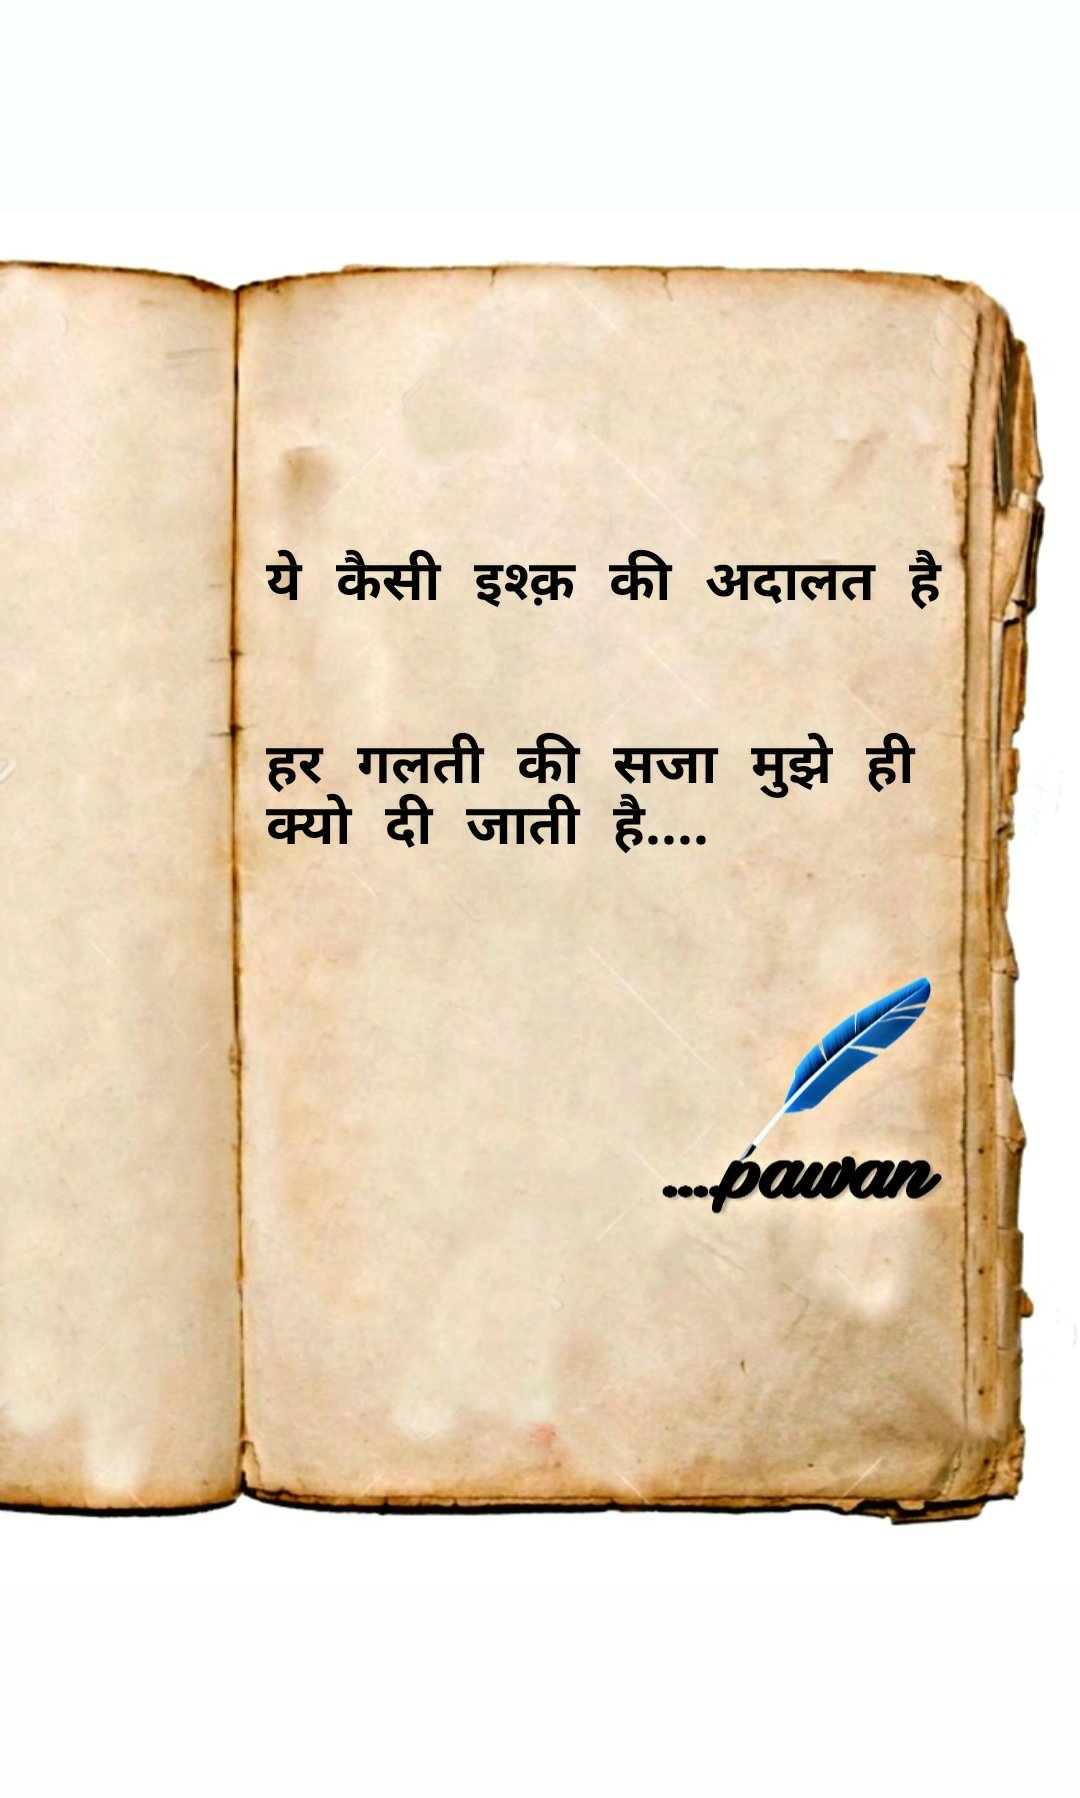 ये कैसी इश्क़ की अदालत है
हर गलती की सजा मुझे ही
क्यो दी जाती है....
....pawan